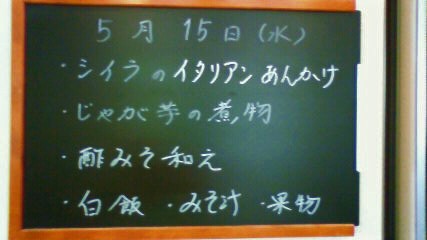 5月15日(水)
・シイラのイタリアンあんかけ
・じゃが芋の煮物
・酢みそ和え
・白飯 ・みそ汁 ・果物